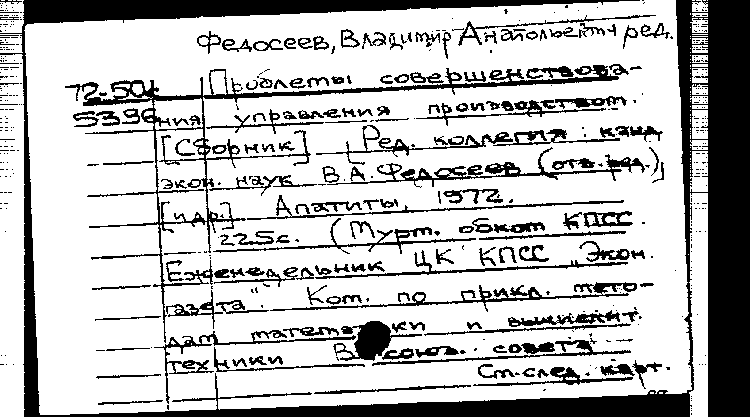 Федосеев, Владимир Анатольевич ред.
72-50к Проблемы совершенствова-
5396 ния управления производством.
[Сборник] [Ред. коллегия: канд.
экон. наук В.А. Федосеев (отв. ред.),
[и др.] Апатиты, 1972.
225с. (Мурм. обком КПСС.
Еженедельник ЦК КПСС „Экон.
газета". Ком. по прикл. мето-
дам математики и вычислит.
техники Всесоюз. совета
См. след. карт.